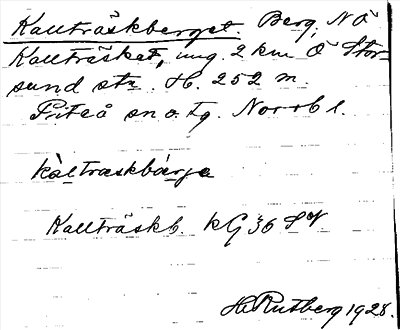 Kallträskberget. Berg, NÖ
Kallträsket, ung. 2 km Ö Stor-
sund stn. H. 252 m.
Piteå sn o. tg. Norrb l.
kàltraskbárja
Kallträskb. kG 36 SV
H Rutberg 1928.